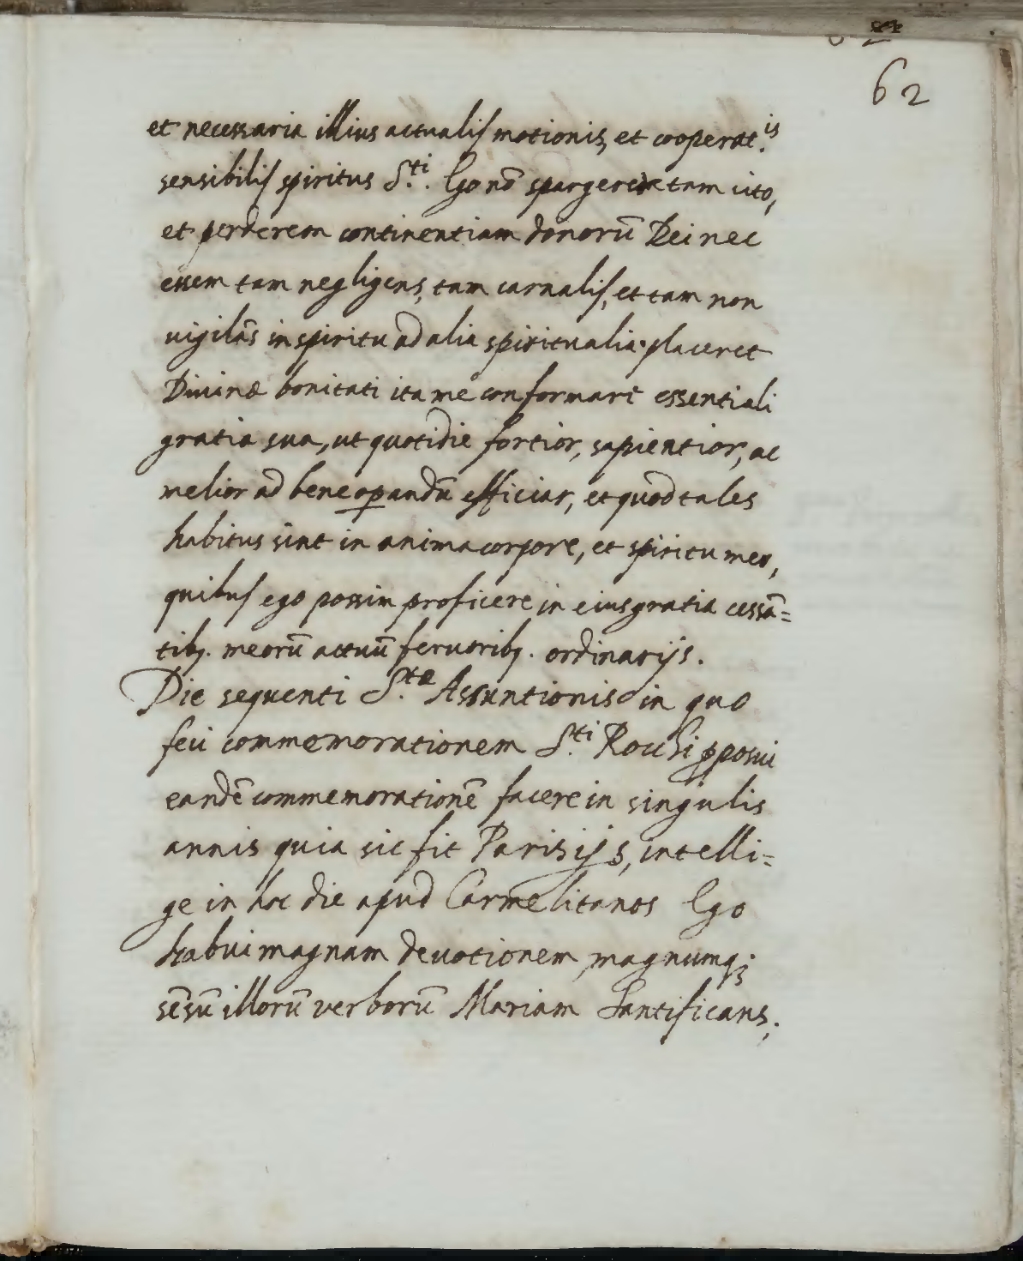 62
et necessaria illius actualis motionis, et cooperat.is
sensibilis spiritus S.ti. Ego nō spargerer tam cito,
et perderem continentiam donorū Dei nec
essem tam negligens, tam carnalis, et tam non
vigilās in spiritu ad alia spiritualia. placeret
Divinæ bonitati ita me conformari essentiali
gratia sua, ut quotidie fortior, sapientior, ac
melior ad bene oꝑandū efficiar, et quod tales
habitus sint in anima corpore, et spiritu meo,
quibus ego possim proficere in eius gratia cessā=
tibꝫ. meorū actuū fervoribꝫ. ordinarijs.
Die sequenti S.tæ Assuntionis in quo
feci commemorationem S.ti Rochi ꝓposui
eandē commemorationē facere in singulis
annis quia sic fit Parisijs, intelli=
ge in hoc die apud Carmelitanos Ego
habui magnam devotionem, magnumqꝫ
sēsū illorū verborū Mariam Santificans,